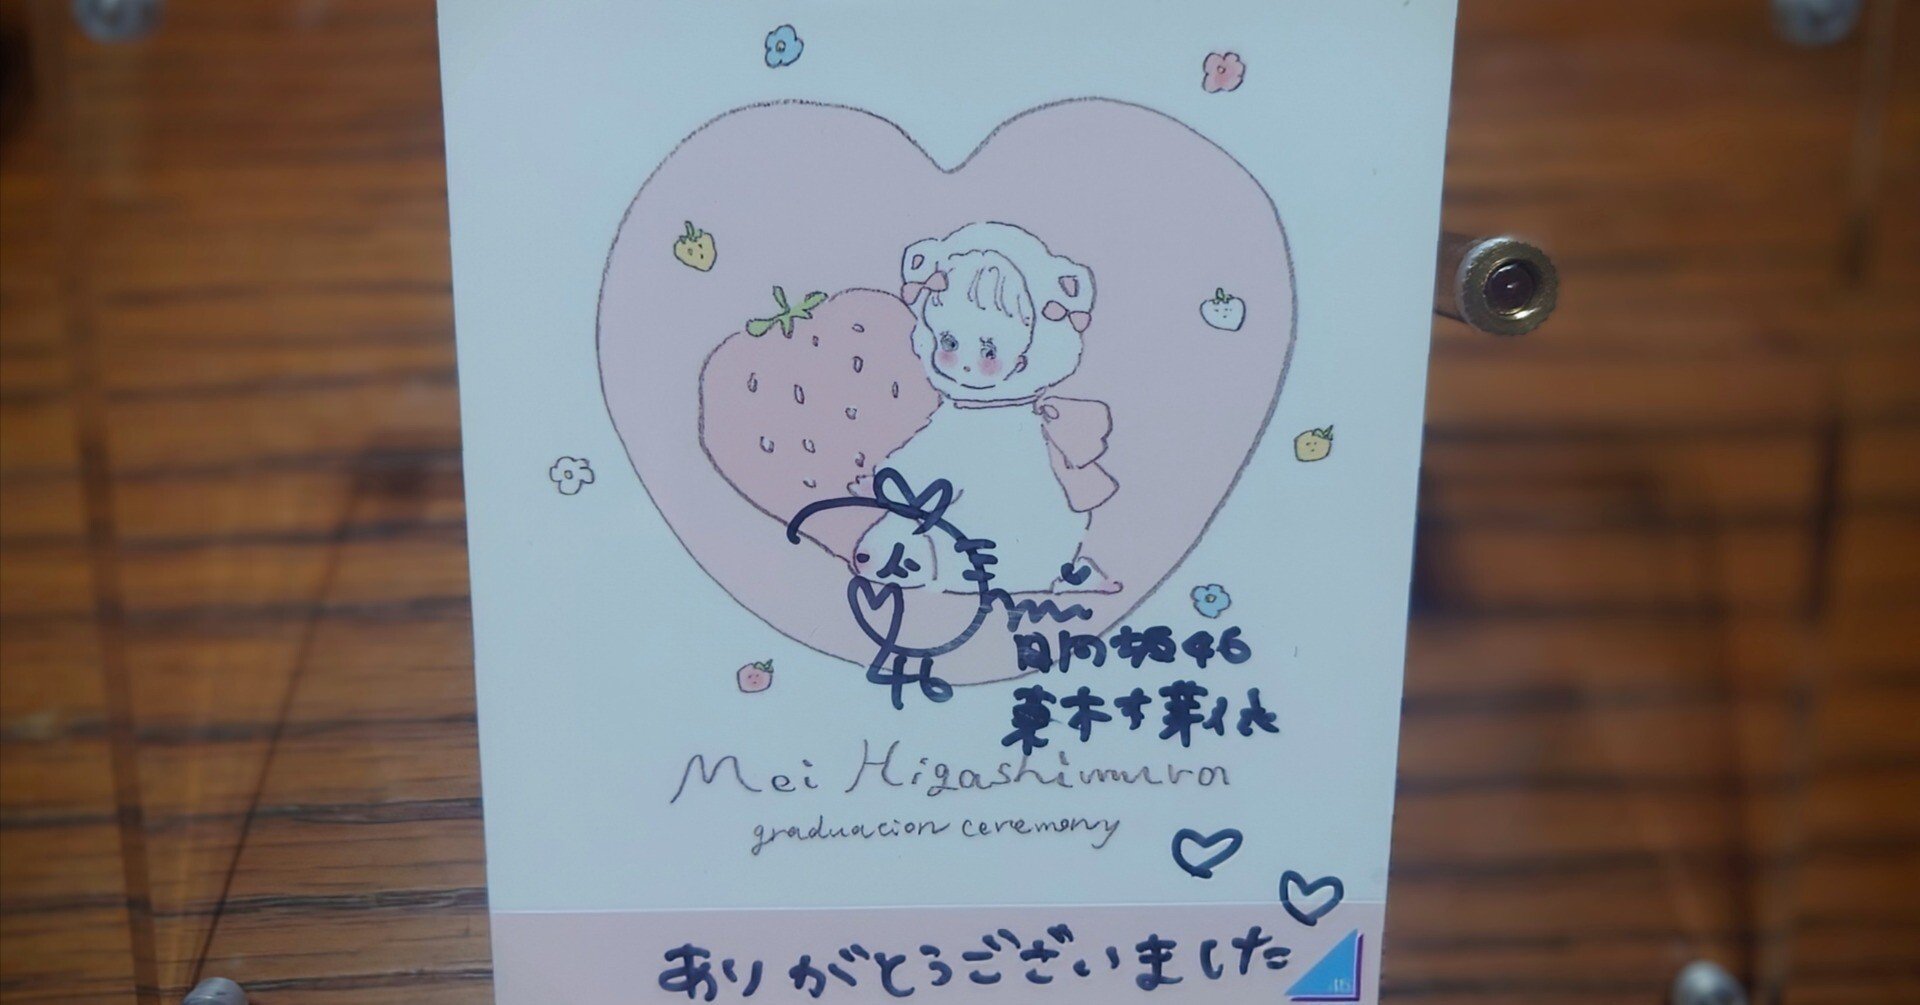 46
日向坂46
東村芽依
Mei Higashimura
graduacion ceremony
ありがとうございました
46